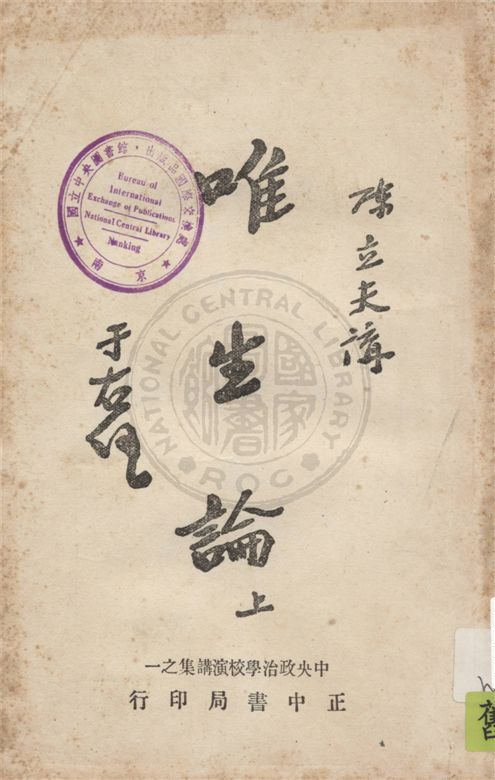 陳立夫講
唯生論
上
于右任
國立中央圖書館·出版品國際交換處
Bureau of
International
Exchange of Publications
National Central Library
Nanking
南京
NATIONAL CENTRAL LIBRARY
ROC
國家
圖書
中央政治學校演講集之一
正中書局印行
舊